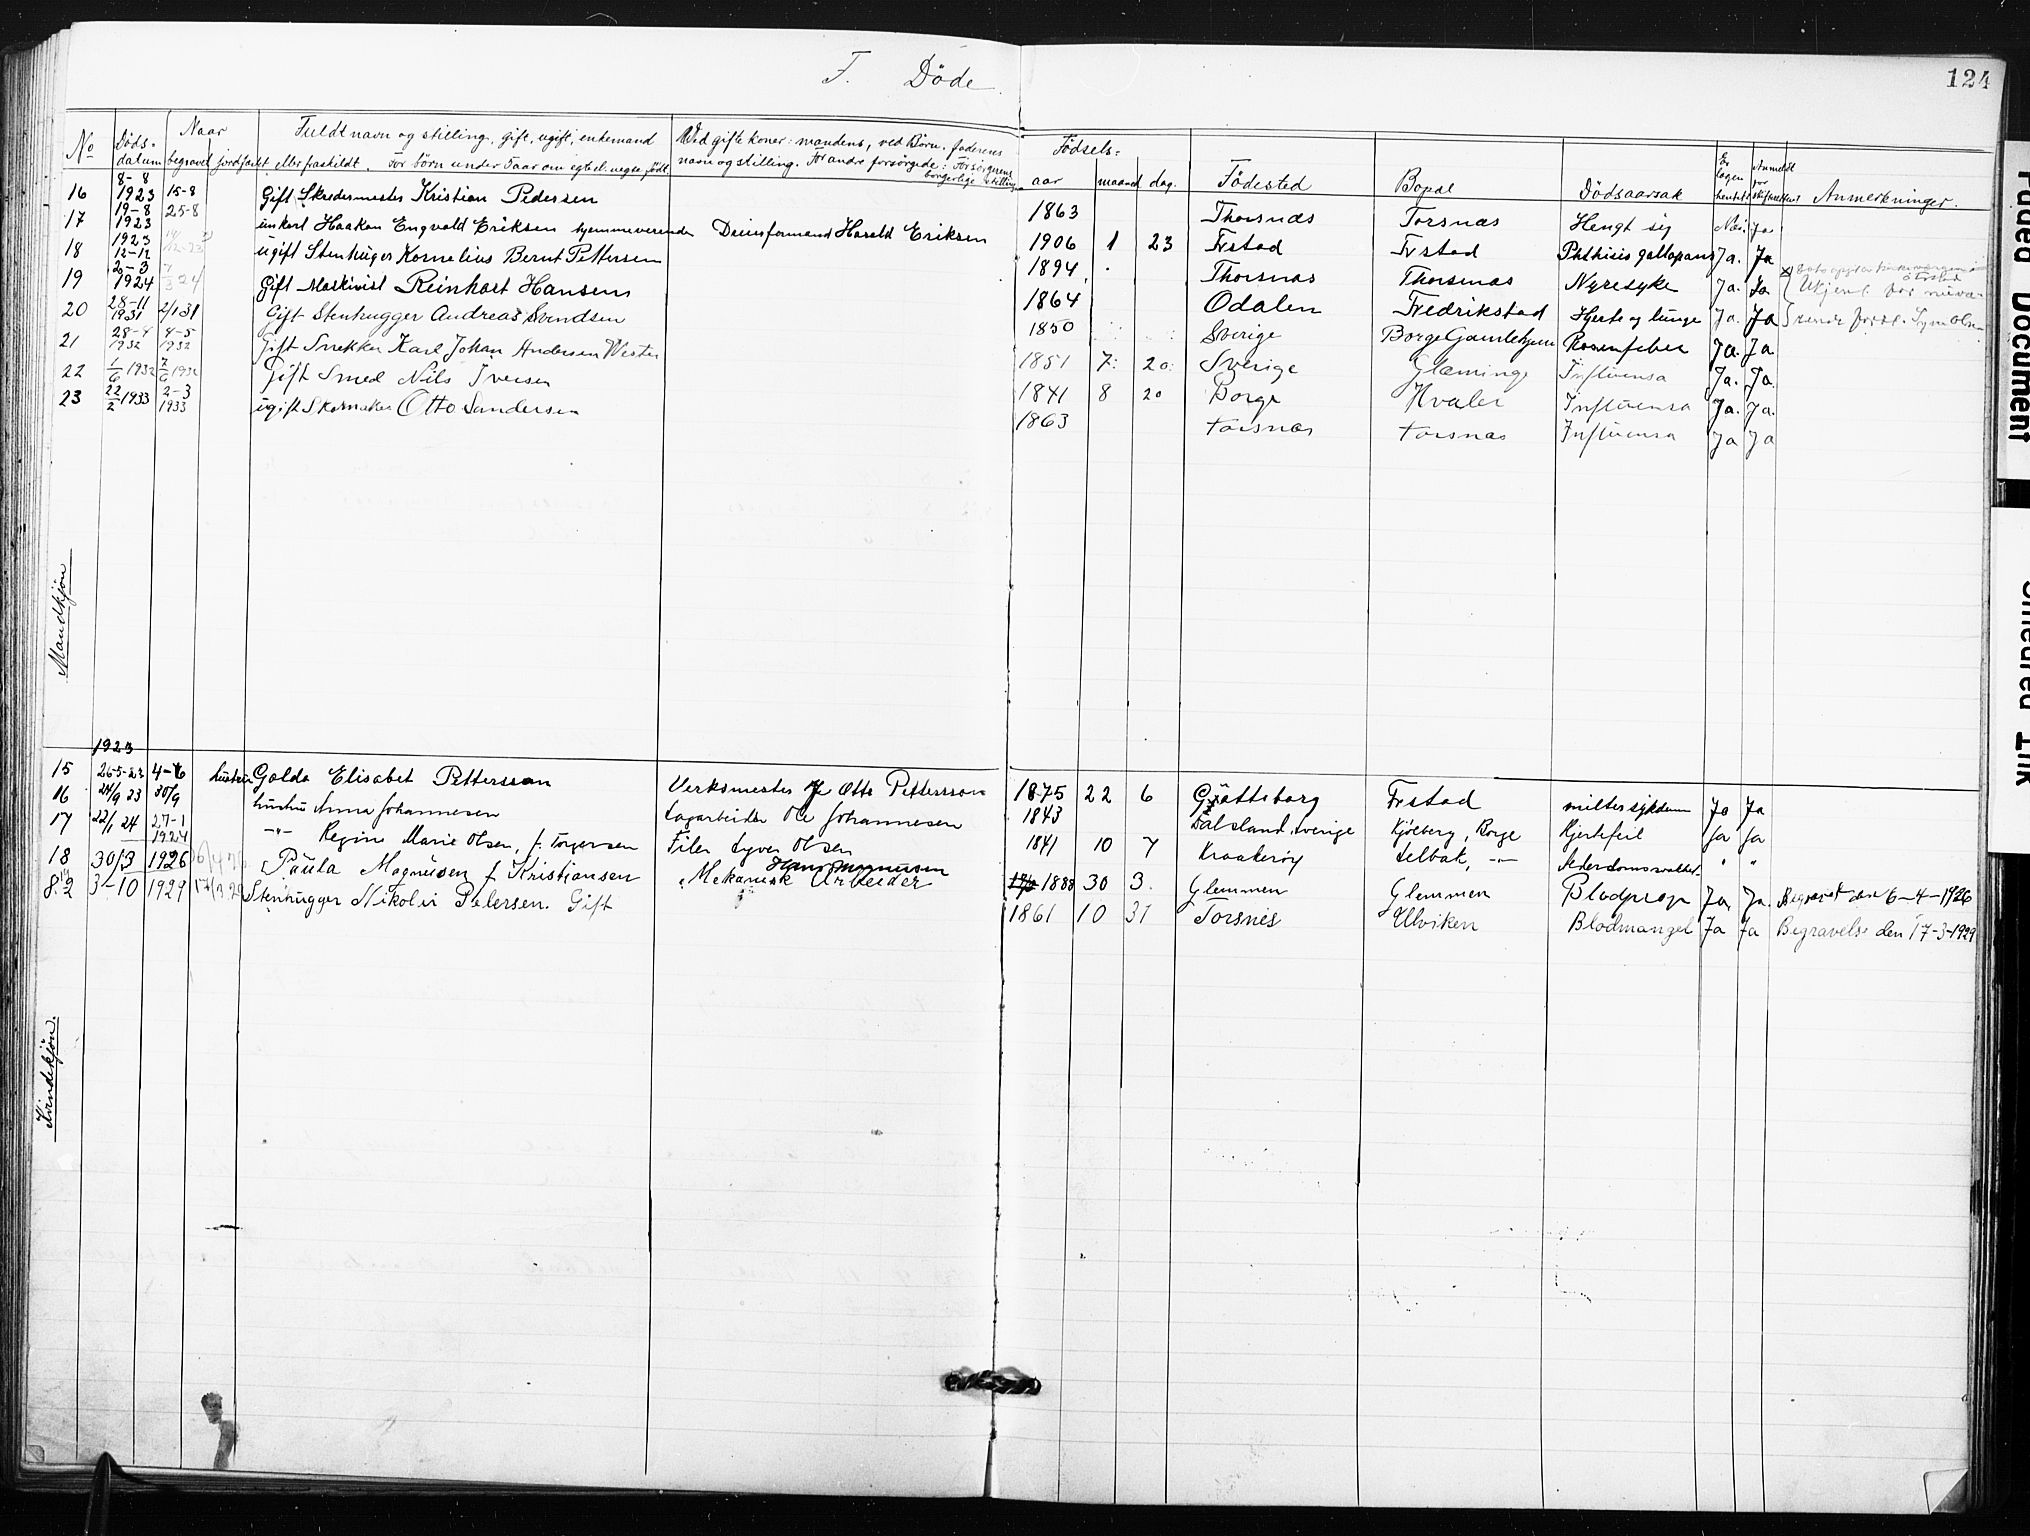 F. Döde.
124
No
Döds-datum
Naar begravet jordfæstet
Fuldt navn og stilling, gift, ugift, enkemand eller fraskildt. For børn under 1 aar om egte el. uegte født.
Ved gifte koner: mandens, ved Börn: faderens navn og stilling. For andre forsörgede: Forsörgerens borgerlige stilling
Födsels-
aar maaned dag.
Födested
Bopæl
Dödsaarsak
Anmeldt for skifteretten
Anmerkninger.
16 8-8 1923 15-8 Gift Skredermester Kristian Pedersen 1863 Thorsnæs Torsnæs Hengt sig Nei. Ja
17 19-8 1923 25-8 unkarl Haakon Engvald Eriksen hjemmeværende Driunsformand Harald Eriksen 1906 1 23 Frstad Frstad Phthisis gallopans Ja. Ja
18 1923 12-12 ugift Stenhuger Kornelius Bernt Pettersen 1894 Thorsnæs Thorsenæs Nyresyke Ja. Ja
19 2-3 1924 Gift Maskinist Reinhart Hansen 1864 Odalen Fredrikstad Hjerte og lunge Ja. Ja
20 28-11 1931 2/1 31 Gift Stenhugger Andreas Svendsen 1850 Sverige Borge Gamlehjem Rosenfeber Ja. Ja
21 28-4 1932 4-5 1932 Gift Snekker Karl Johan Andersen Wester 1851 7 20 Sverige Glæminge Influensa Ja. Ja
22 1/6 1932 7/6 1932 Gift Smed Nils Iversen 1841 8 20 Borge Hvaler Influensa Ja. Ja.
23 22/2 1933 2-3 1933 ugift Skomaker Otto Sandersen 1863 torsnæs torsnæs Influensa Ja Ja
Mandkjön
1923
15 26-5-23 4-6 hustru Golda Elisabet Pettersson Verksmester Otto Pettersson 1875 22 6 Gjötteborg Frstad miltersykdom Ja Ja
16 24/9 23 30/9 hustru Anna Johannesen Lagarbeider Ole Johannesen 1843 Dalsland, Sverige Kjölberg, Borge Hjertefeil Ja Ja
17 22/1 24 27-1 1924 -"- Regine Marie Olsen, f. Torgersen Filer Syver Olsen 1841 10 7 Kraakeröy Selbak, -"- Alderdomssvakhet " "
18 30/3 1926 Paula Magnusen f Kristiansen Mekanisk Arbeider Hans Magnusen 1888 30 3. Glemmen Glemmen Blodprop Ja. Ja. Begravet den 6-4-1926
3-10 1929 Stenhugger Nikolai Petersen. Gift 1861 10 31 Torsnes Ulviken Blodmangel Ja Ja Begravelse den 17-3-1929
Kvindekjön.
Faded Document
Smeared Ink